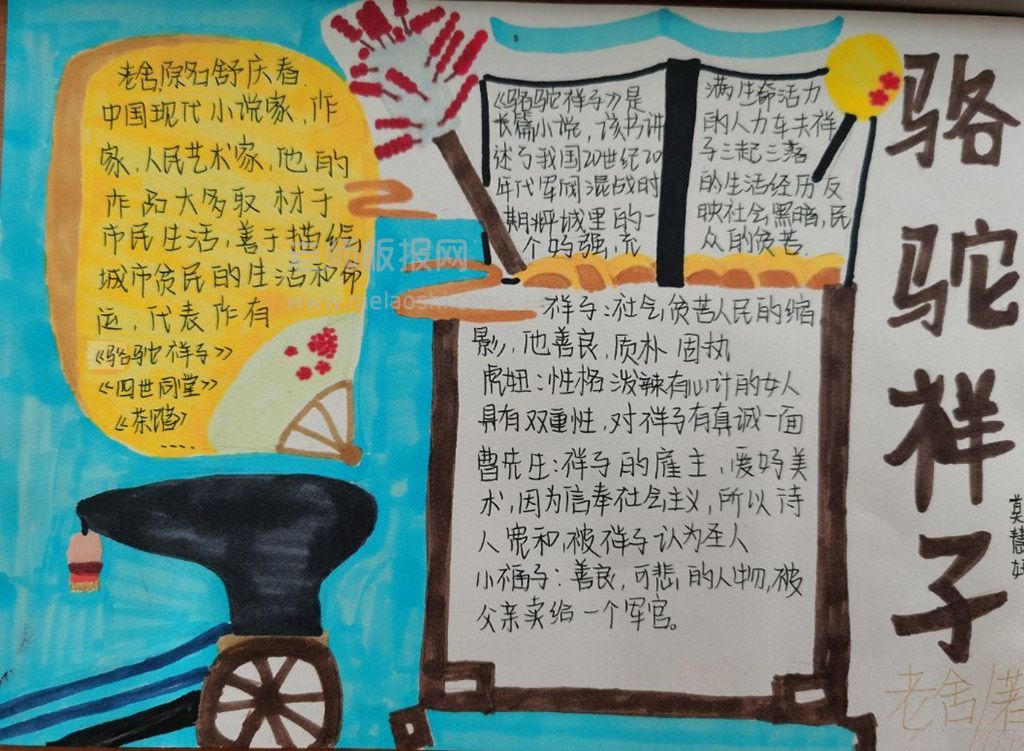 骆驼祥子
老舍/著
老舍,原名舒庆春.
中国现代小说家,作
家,人民艺术家,他的
作品大多取材于
市民生活,善于描绘
城市贫民的生活和命
运,代表作有
《骆驼祥子》
《四世同堂》
《茶馆》
....
《骆驼祥子》是
长篇小说,该书讲
述了我国20世纪20
年代军阀混战时
期北平城里的一
个好强,充
满生命活力
的人力车夫祥
子三起三落
的生活经历,反
映社会黑暗,民
众的贫苦.
祥子:社会贫苦人民的缩
影,他善良,质朴 固执
虎妞:性格泼辣有心计的女人
具有双重性,对祥子有真诚一面
曹先生:祥子的雇主,爱好美
术,因为信奉社会主义,所以待
人宽和,被祥子认为圣人
小福子:善良,可悲的人物,被
父亲卖给一个军官。